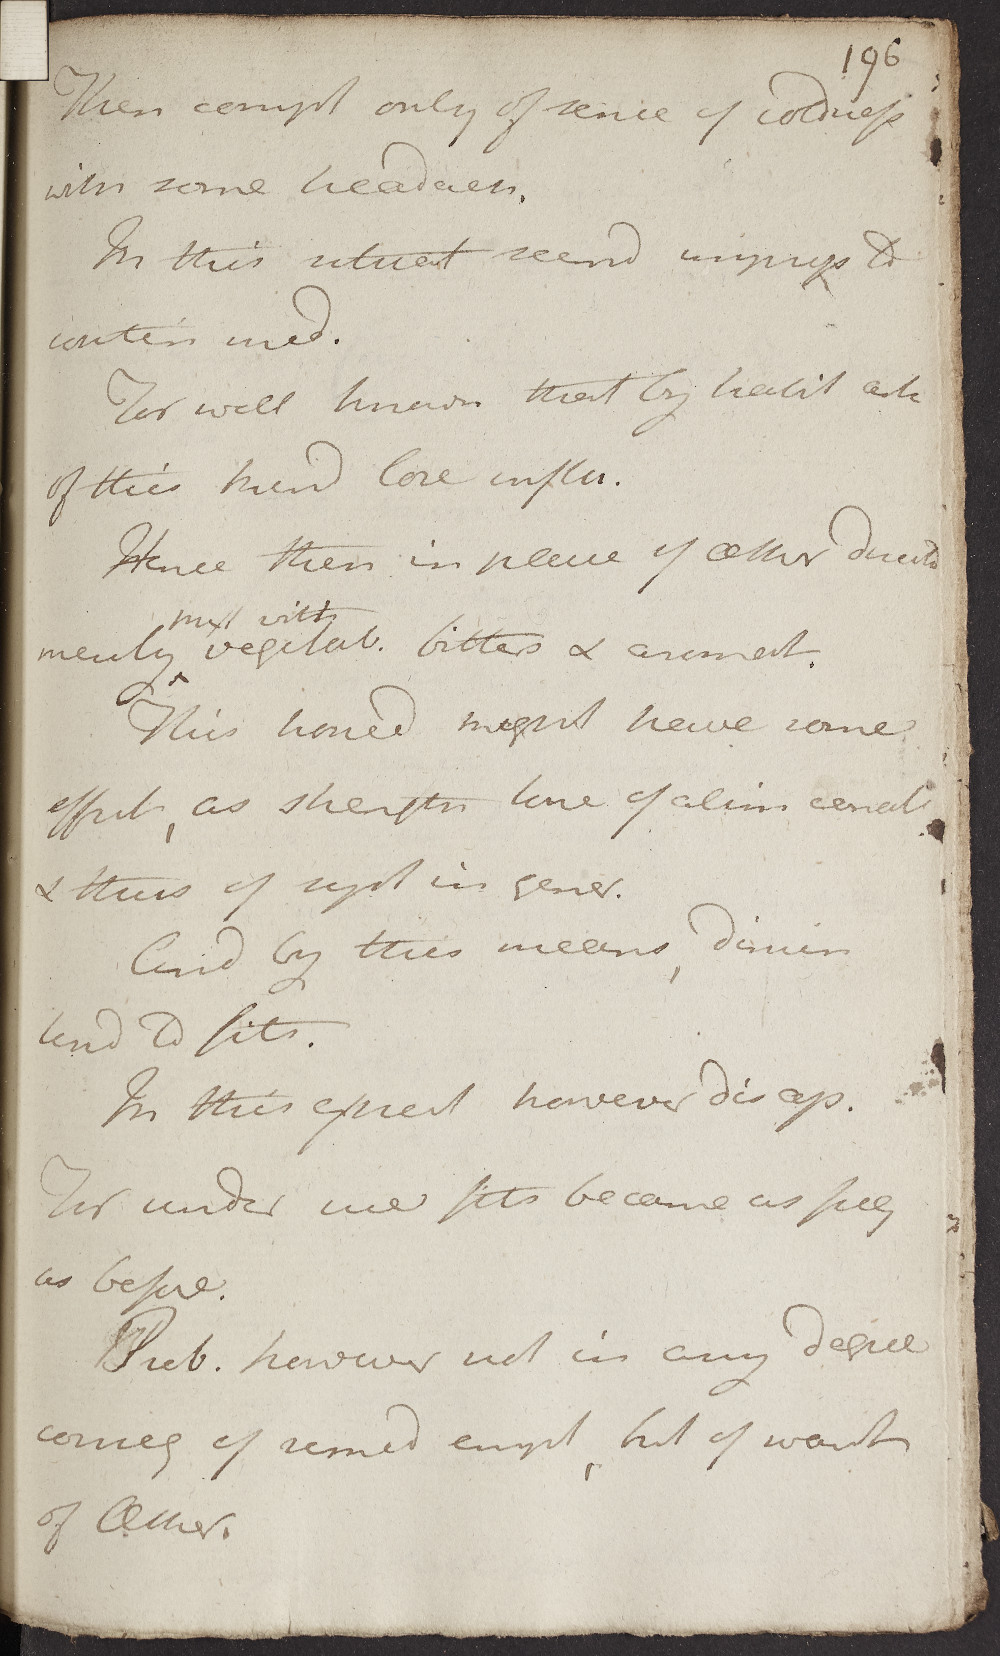 196
Then compt only of sence of coldness
with some headach.
In this situat seemd improp to
contin med.
For well known that by habit art
of this kind lose influ.
Hence then in place of Æther directd
mix with
merely vegitab. bitters & aromat.
This hoped might have some
effect, as strength tone of alim canal
& thus of syst in gener.
And by this means, dimin
tend to fits.
In this expect however disap.
For under use fits became as freq
as before.
Prob. however not in any degree
conseq of remed empl, but of want
of Æther.